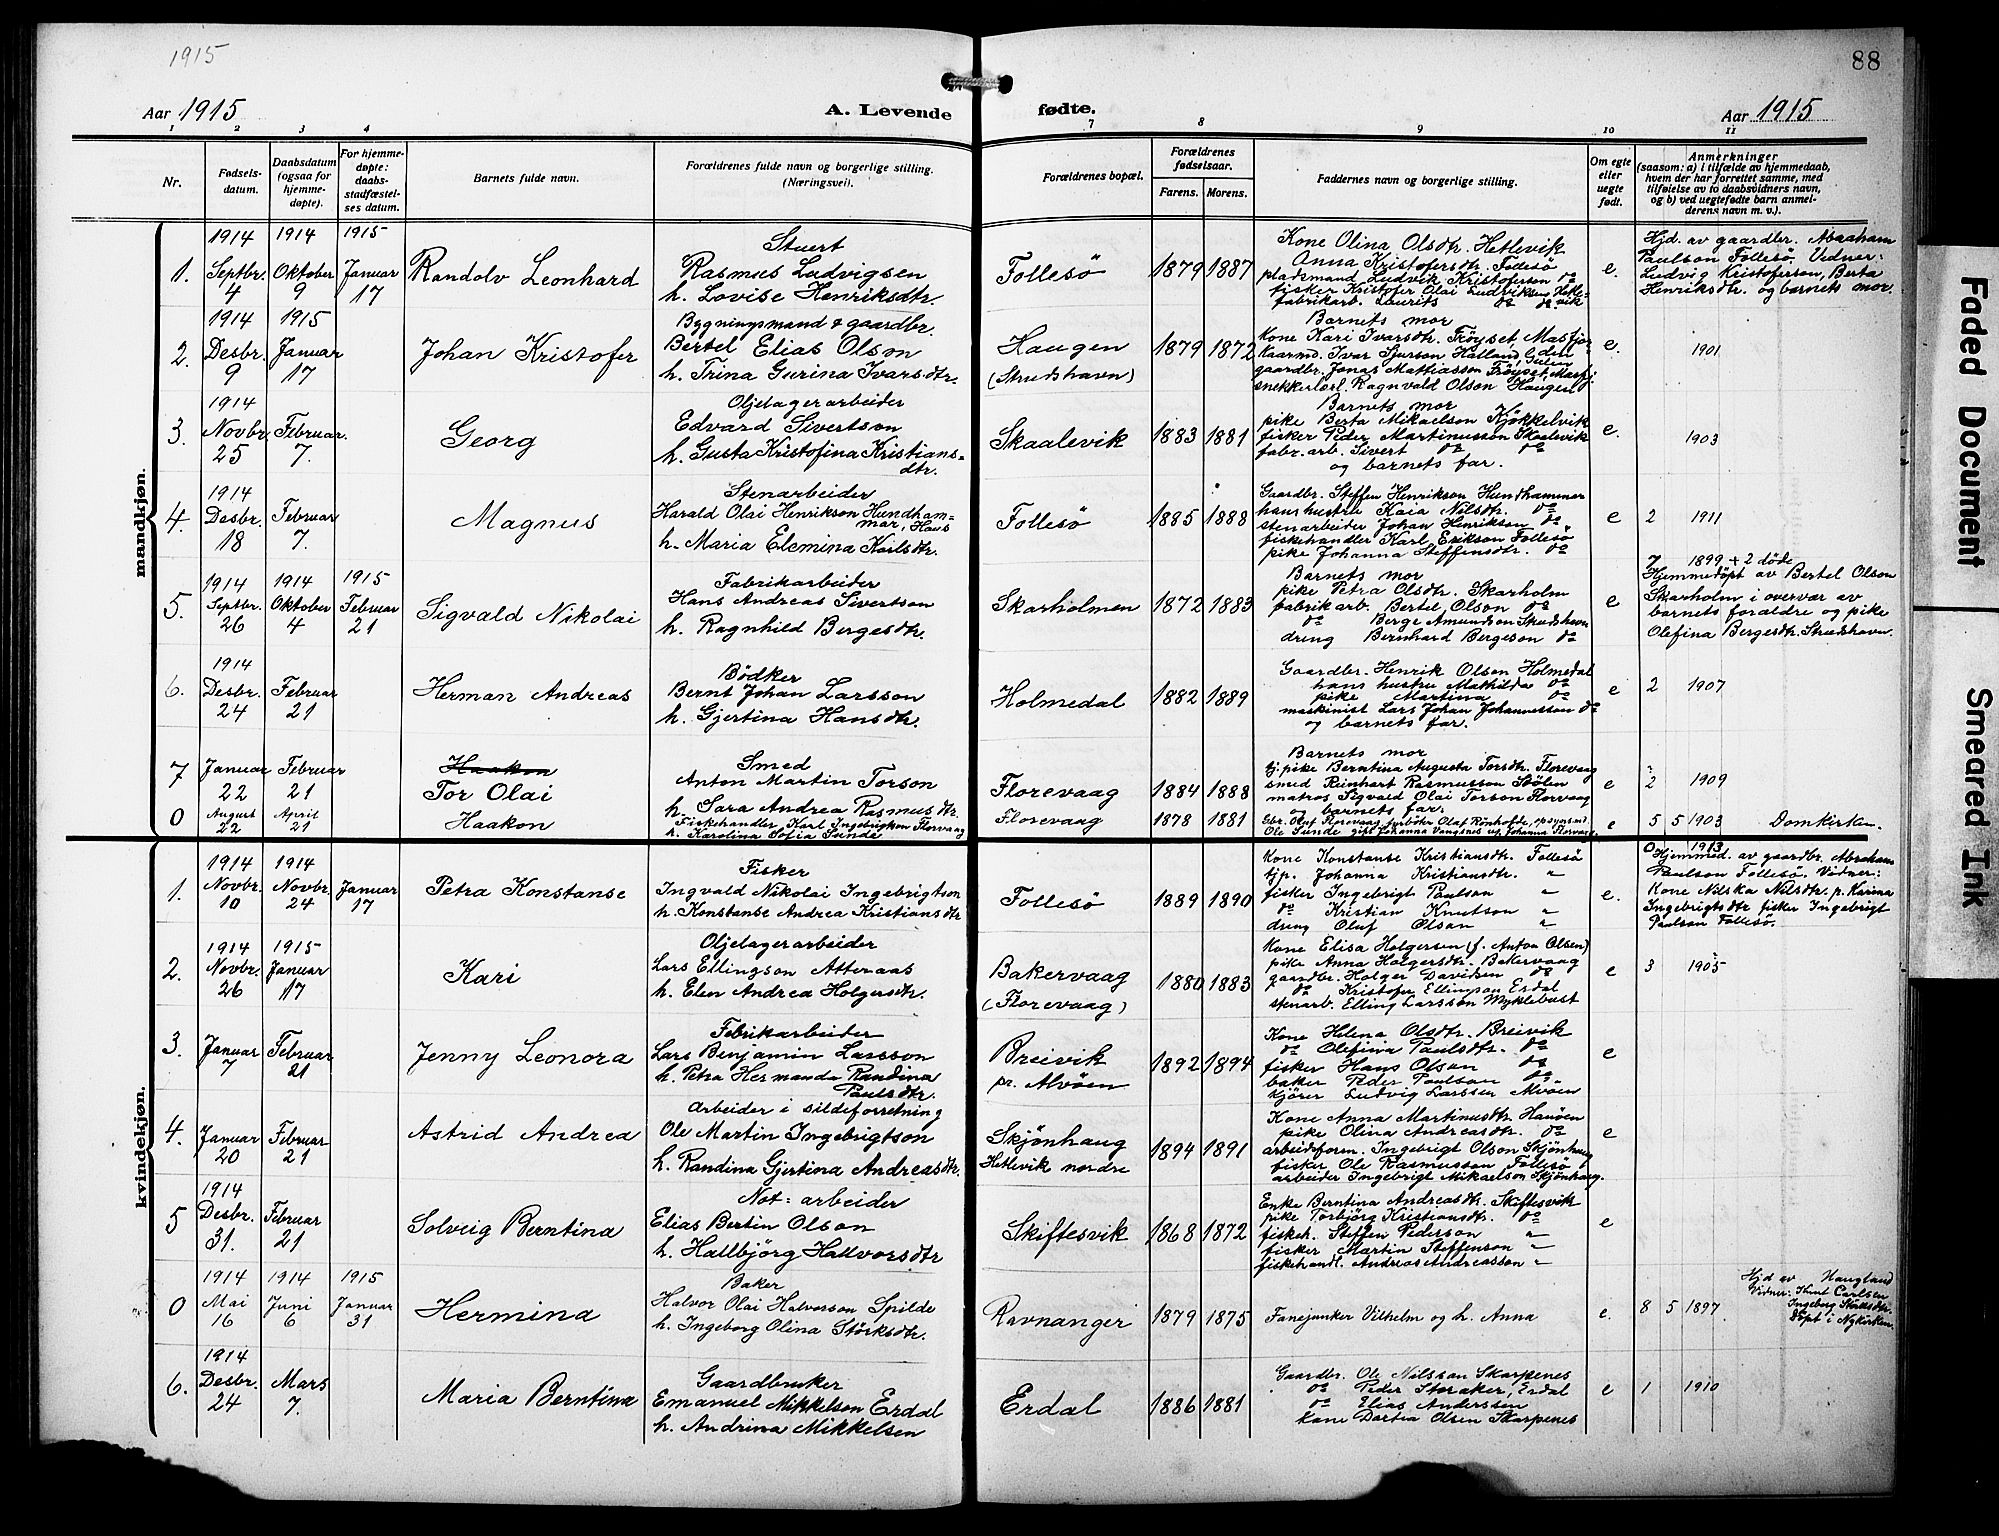 1915
88
Aar 1915
A. Levende fødte.
Aar 1915
1 2 3 4 7 8 9 10 11
Nr.
Fødsels-
datum.
Daabsdatum
(ogsaa for
hjemme-
døpte).
For hjemme-
døpte:
daabs-
stadfæstel-
ses datum.
Barnets fulde navn.
Forældrenes fulde navn og borgerlige stilling.
(Næringsvei).
Forældrenes bopæl.
Forældrenes
fødselsaar.
Farens. Morens.
Faddernes navn og borgerlige stilling.
Om egte
eller
uegte
født.
Anmerkninger
(saasom: a) i tilfælde av hjemmedaab,
hvem der har forrettet samme, med
tilføielse av to daabsvidners navn,
og b) ved uegtefødte barn anmel-
derens navn m. v.).
mandkjøn.
1.
1914
Septbr.
4
1914
Oktober
9
1915
Januar
17
Randolv Leonhard
Stuert
Rasmus Ludvigsen
h. Lovise Henriksdtr.
Follesö
1879 1887
Kone Olina Olsdtr. Hetlevik
Anna Kristofersdtr. Follesö
pladsmand Ludvik Kristoferson do
fisker Kristofer Olai Ludviksen, Hetle-
fabrikarb. Laurits do do vik
e.
Hjd. av gaardbr. Abraham
Paulson Follesö. Vidner:
Ludvig Kristoferson, Berta
Henriksdtr. og barnets mor.
2.
1914
Desbr.
9
1915
Januar
17
Johan Kristofer
Bygningsmand & gaardbr.
Bertel Elias Olson
h. Trina Gurina Ivarsdtr.
Haugen
(Strudshavn)
1879 1872
Barnets mor
Kone Kari Ivarsdtr. Fröyset, Masfjor-
kaarmd. Ivar Sjurson Hatland, Gulen den
gaardbr. Jonas Mattiasson Fröyset, Masfj.
snekkerlærl. Ragnvald Olson Haugen
e.
1901
3.
1914
Novbr.
25
Februar.
7.
Georg
Oljelagerarbeider
Edvard Sivertson
h. Gusta Kristofina Kristians=
dtr.
Skaalevik
1883 1881
Barnets mor
pike Berta Mikaelson Kjökkelvik
fisker Peder Martinusson Skaalevik
fabr. arb. Sivert do do
og barnets far.
e.
1903
4.
1914
Desbr.
18
Februar
7.
Magnus
Stenarbeider
Harald Olai Henrikson Hundham-
mar, Haus
h. Maria Elemina Karlsdtr.
Follesö
1885 1888
Gaardbr. Steffen Henrikson Hundhammer
hans hustru Kaia Nilsdtr. do
stenarbeider Johan Henrikson do
fiskehandler Karl Erikson Follesö
pike Johanna Steffensdtr. do
e
2 1911
5.
1914
Septbr.
26
1914
Oktober
4
1915
Februar
21
Sigvald Nikolai
Fabrikarbeider
Hans Andreas Sivertson
h. Ragnhild Bergesdtr.
Skarholmen
1872 1883
Barnets mor
pike Petra Olsdtr. Skarholm
fabrikarb. Bertel Olson do
do Berge Amundson Strudshavn
dreng Bernhard Bergeson do
e
7 1899 + 2 døde
Hjemmedöpt av Bertel Olson
Skarholm i overvær av
barnets forældre og pike
Olefina Bergesdtr. Strudshavn.
6.
1914
Desbr.
24
Februar
21
Herman Andreas
Bödker
Bernt Johan Larsson
h. Gjertina Hansdtr.
Holmedal
1882 1889
Gaardbr. Henrik Olsen Holmedal
hans hustru Mathilda do
pike Martina do
maskinist Lars Johan Johannesson do
og barnets far.
e
2 1907
7
Januar
22
Februar
21
Haakon
Tor Olai
Smed
Anton Martin Torson
h. Sara Andrea Rasmusdtr.
Florevaag
1884 1888
Barnets mor
tj. pike Berntina Augusta Torsdtr. Florevaag
smed Reinhart Rasmusson Stölen
matros Sigvald Olai Torson Florvaag
og barnets far.
e
2 1909
0
August
22
April
21
Haakon
Fiskehandler Karl Ingebrigtson Florvaag
h. Karolina Sofia Sunde
Florevaag
1878 1881
Ole Sunde gift Johanna
e
5 5 1903 Domkirken.
kvindekjøn.
1.
1914
Novbr.
10
1914
Novbr.
24
Januar
17
Petra Konstanse
Fisker
Ingvald Nikolai Ingebrigtson
h. Konstanse Andrea Kristiansdtr
Follesö
1889 1890
Kone Konstanse Kristiansdtr. Follesö
tjp. Johanna Kristiansdtr. "
fisker Ingebrigt Paulson "
do Kristian Knutson "
dreng Oluf Olsan "
e.
0 1913
Hjemmed. av gaardbr. Abraham
Paulson Follesö. Vidner:
Kone Nilska Nilsdtr. p. Karina
Ingebrigtsdtr fisker Ingebrigt
Paulson Follesö.
2.
1914
Novbr.
26
1915
Januar
17
Kari
Oljelagerarbeider
Lars Ellingson Atteraas
h. Elen Andrea Holgersdtr.
Bakervaag
(Florevaag)
1880 1883
Kone Elisa Holgersen (f. Anton Olsen)
pike Anna Holgersdtr. Bakervaag
gaardbr. Holger Davidsen do
do Kristofer Ellingson Erdal
stenarb. Elling Larsson Myklebust
e
3 1905
3.
Januar
7
Februar
21
Jenny Leonora
Febrikarbeider
Lars Benjamin Larsson
h. Petra Hermanda Randina
Paulsdtr.
Breivik
pr. Alvöen
1892 1894
Kone Helena Olsdtr. Breivik
do Olefina Paulsdtr. do
fisker Hans Olson do
baker Peder Paulson do
kjörer Ludvig Larssen Alvöen
e
4.
Januar
20
Februar
21
Astrid Andrea
Arbeider i sildeforretning
Ole Martin Ingebrigtson
h. Randina Gjertina Andreasdtr.
Skjönhaug
Hetlevik nordre
1894 1891
Kone Anna Martinusdtr. Hanöen
pike Olina Andreasdtr. do
arbeidsform. Ingebrigt Olson Skjönhaug
fisker Ole Rasmusson Follesö
arbeider Ingebrigt Mikaelson Skjönhaug.
e
5
1914
Desbr.
31.
Februar
21
Solveig Berntina
Not=arbeider
Elias Bertin Olson
h. Hallbjörg Hallvorsdtr
Skiftesvik
1868 1872
Enke Berntina Andreasdtr. Skiftesvik
pike Torbjörg Kristiansdtr. do
fiskeh. Steffen Pederson "
fisker Martin Steffenson "
fiskehandl. Andreas Andreasson "
e
0
1914
Mai
16
1914
Juni
6
1915
Januar
31
Hermina
Baker
Halvor Olai Halvorson Spilde
h. Ingeborg Olina Störksdtr.
Ravnanger
1879 1875
Fanejunker Vilhelm og h. Anna
e.
8 5 1897
Hjd av Haugland
Vidner: Knut Carlsen
Ingeborg Störksdtr.
Döpt i Nykirken.
6.
1914
Desbr.
24
Mars
7.
Maria Berntina
Gaardbruker
Emanuel Mikkelson Erdal
h. Andrina Mikkelsen
Erdal
1886 1881
Gaardbr. Ole Nilsson Skarpenes
do Peder Storaker, Erdal
do Elias Anderssen
Kone Dortea Olsen Skarpenes
e
1 1910
Faded Document
Smeared Ink